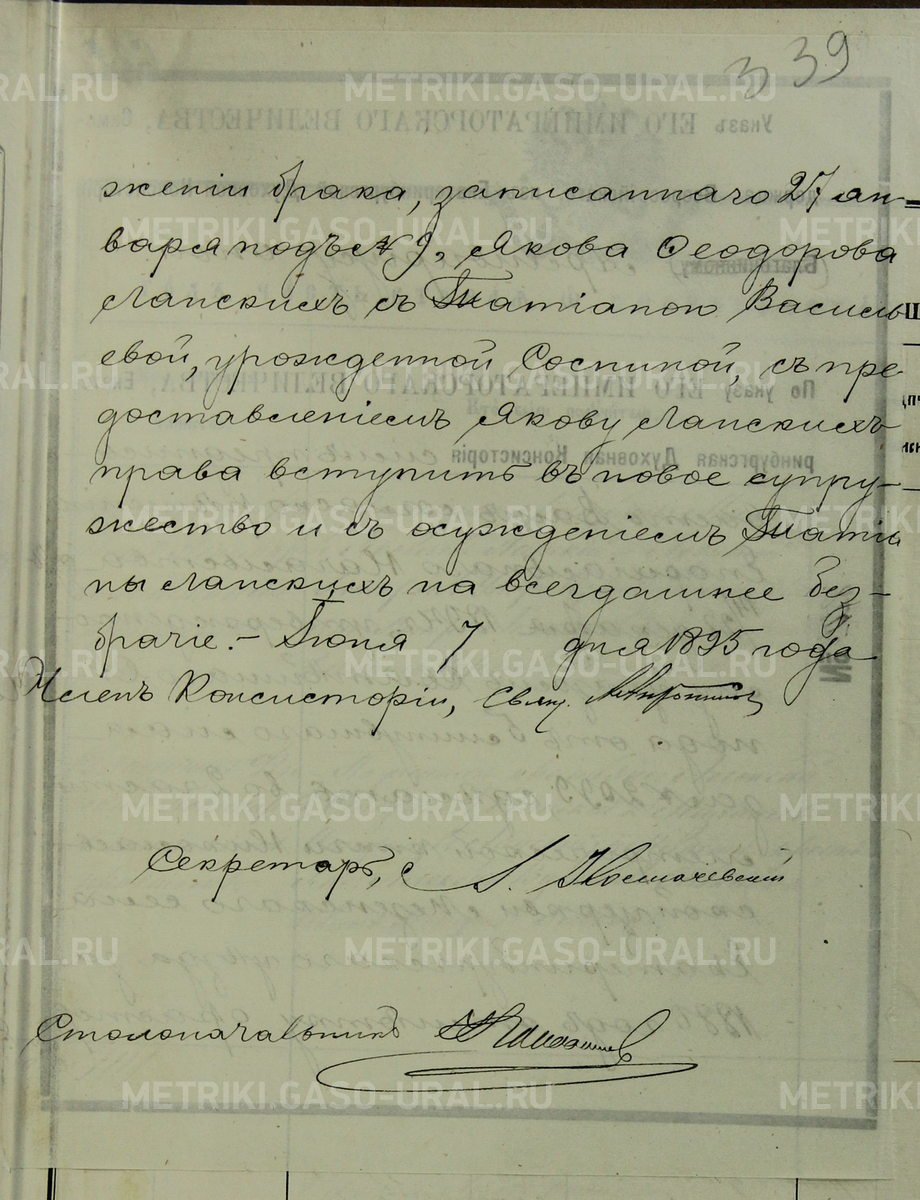 339
женіи брака, записаннаго 27 ян-
варя подъ № 9, Якова Ѳеодорова
Ланскихъ съ Татіаною Василь
евой, урожденной Сосниной, съ пре-
доставленіемъ Якову Ланскихъ
права вступить въ новое супру-
жество и съ осужденіемъ Татіа
ны Ланскихъ на всегдашнее без-
брачіе. – Іюня 7 дня 1895 года
Членъ Консисторіи, Свящ.
Секретарь,
Столоначальникъ
METRIKI.GASO-URAL.RU